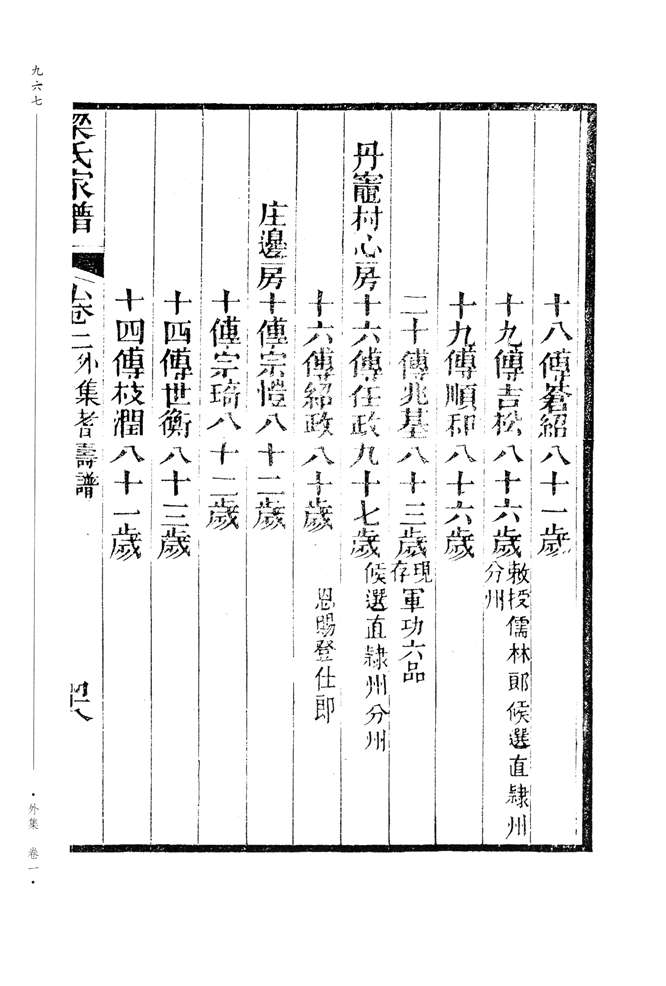 十八傳蒼紹八十一歲
十九傳吉松八十六歲敕授儒林郎候選直隸州分州
十九傳順和八十六歲
二十傳兆基八十三歲現存軍功六品
丹竈村心房十六傳任政九十七歲候選直隸州分州
十六傳紹政八十歲 恩賜登仕郎
庄邊房十傳宗愷八十二歲
十傳宗琦八十二歲
十四傳世衡八十三歲
十四傳枝潤八十一歲
梁氏家譜 卷二外集耆壽譜
九六七
·外集 卷一·